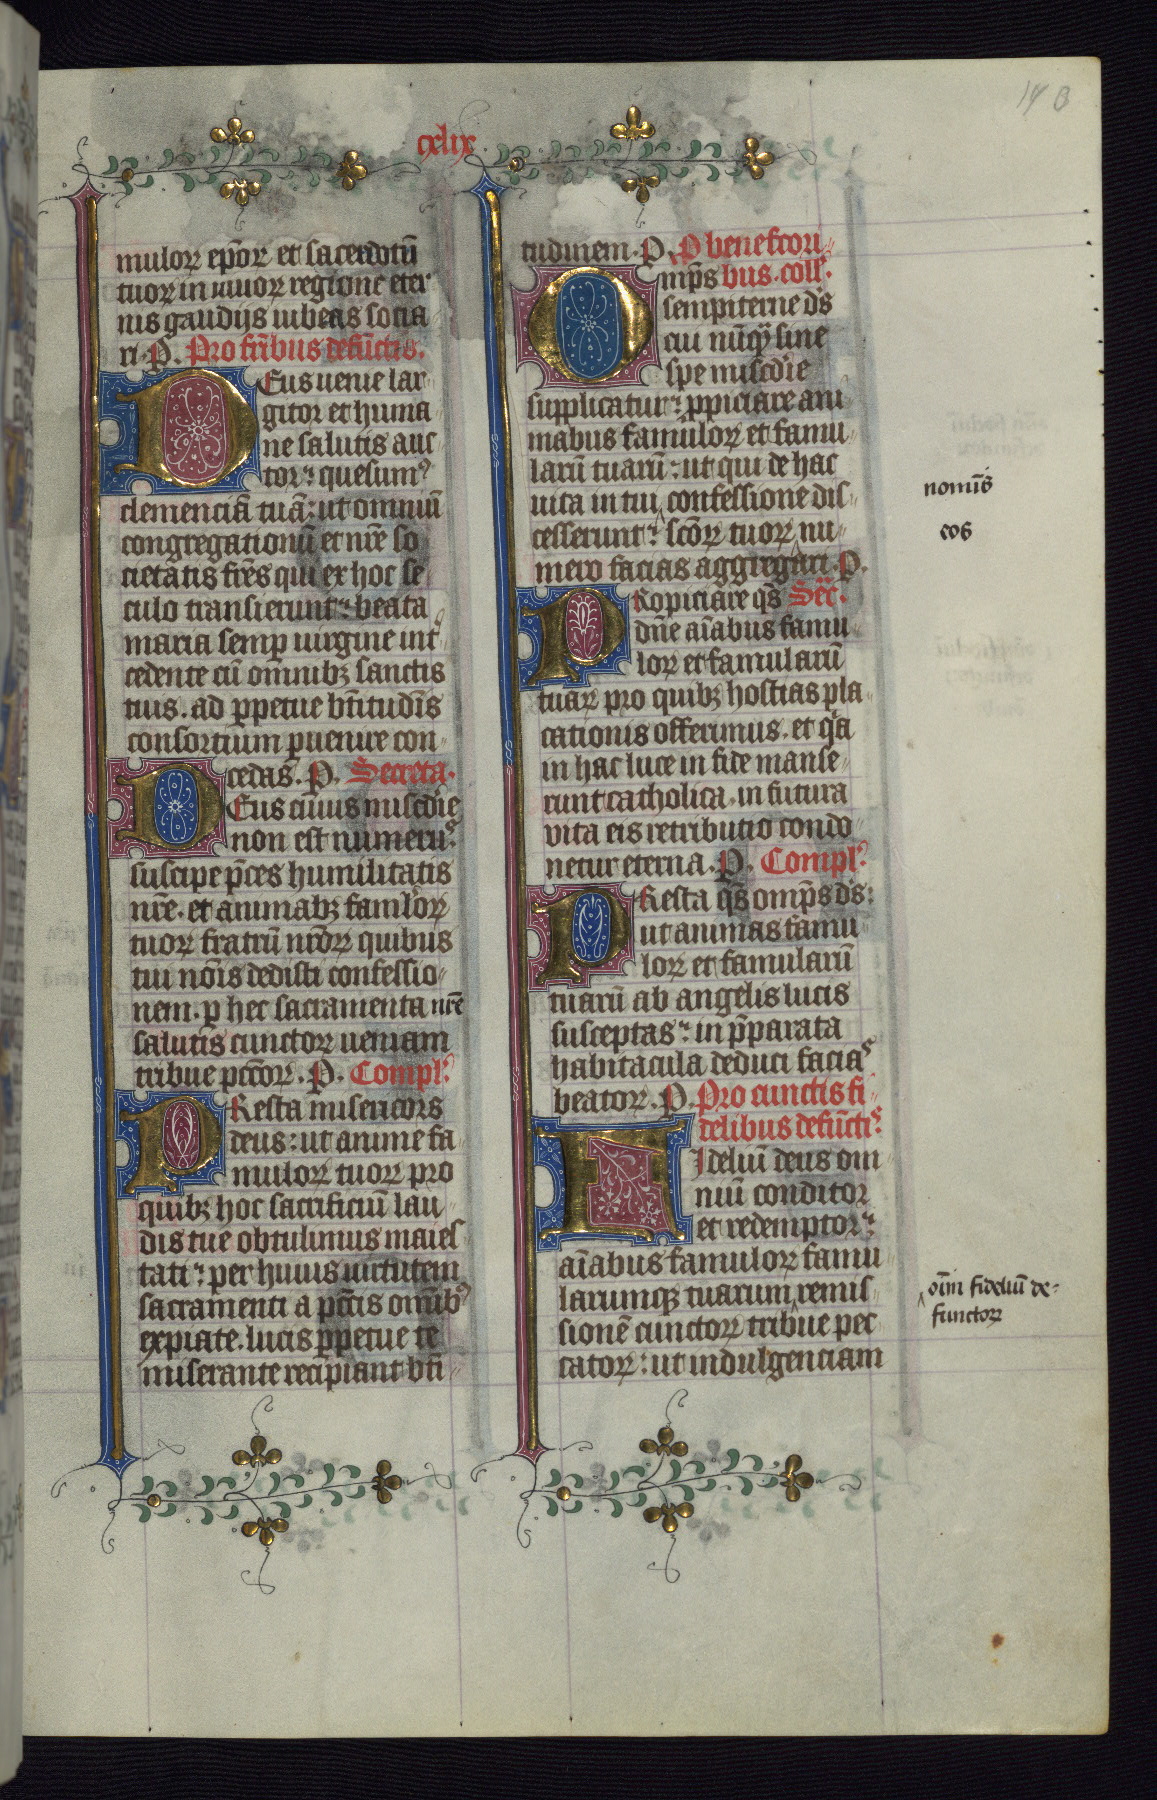 cxlix
mulorꝝ ep̄orꝝ et sacerdotū
tuorꝝ in uiuorꝝ regione eter
nis gaudijs iubeas socia
ri. P. Pro fr̄ibus defūctis.
Deus uenie lar
gitor et huma
ne salutis auc
tor: quesumꝰ
clemenciā tuā: ut omniū
congregationū et nr̄e so
cietatis fr̄es qui ex hoc se
culo transierunt: beata
maria semꝑ uirgine int̄
cedente cū omnibꝫ sanctis
tuis. ad ꝑpetue bt̄itudīs
consortium ꝑuenire con
cedas. P. Secreta.
Deus cuius misc̄die
non est numerus:
suscipe p̄ces humilitatis
nr̄e. et animabꝫ famlorꝝ
tuorꝝ fratrū nr̄orꝝ quibus
tui nōis dedisti confessio
nem. ꝑ hec sacramenta nr̄e
salutis cunctorꝝ ueniam
tribue pcc̄orꝝ. P. Compl.
Presta misericors
deus: ut anime fa
mulorꝝ tuorꝝ pro
quibꝫ hoc sacrificiū lau
dis tue obtulimus maies
tati: per huius uirtutem
sacramenti a pcc̄is omībꝰ
expiate. lucis ꝑpetue te
miserante recipiant bt̄i
tudinem. P. P benefc̄ori
Omp̄s bus. coll.
sempiterne d̄s
cui nūqꝫ sine
spe misc̄die
supplicatur: ꝓpiciare ani
mabus famulorꝝ et famu
larū tuarū: ut qui de hac
uita in tui confessione dis
cesserunt: sc̄orꝝ tuorꝝ nu
mero facias aggregari. P.
Propiciare qs̄ Secr̄.
dn̄e aīabus famu
lorꝝ et famularū
tuarꝝ pro quibꝫ hostias pla
cationis offerimus. et qa
in hac luce in fide manse
runt catholica. in futura
vita eis retributio condo
netur eterna. P. Compl.
Presta qs̄ omp̄s d̄s:
ut animas famu
lorꝝ et famularū
tuarū ab angelis lucis
susceptas: in p̄parata
habitacula deduci facias
beatorꝝ. P. Pro cunctis fi
delibus defūctis.
Fideliū deus om
niū conditor
et redemptor:
aīabus famulorꝝ famu
larumqꝫ tuarum remis
sionē cunctorꝝ tribue pec
catorꝝ: ut indulgenciam
nomīs
eos
oīm fideliū de-
functorꝝ